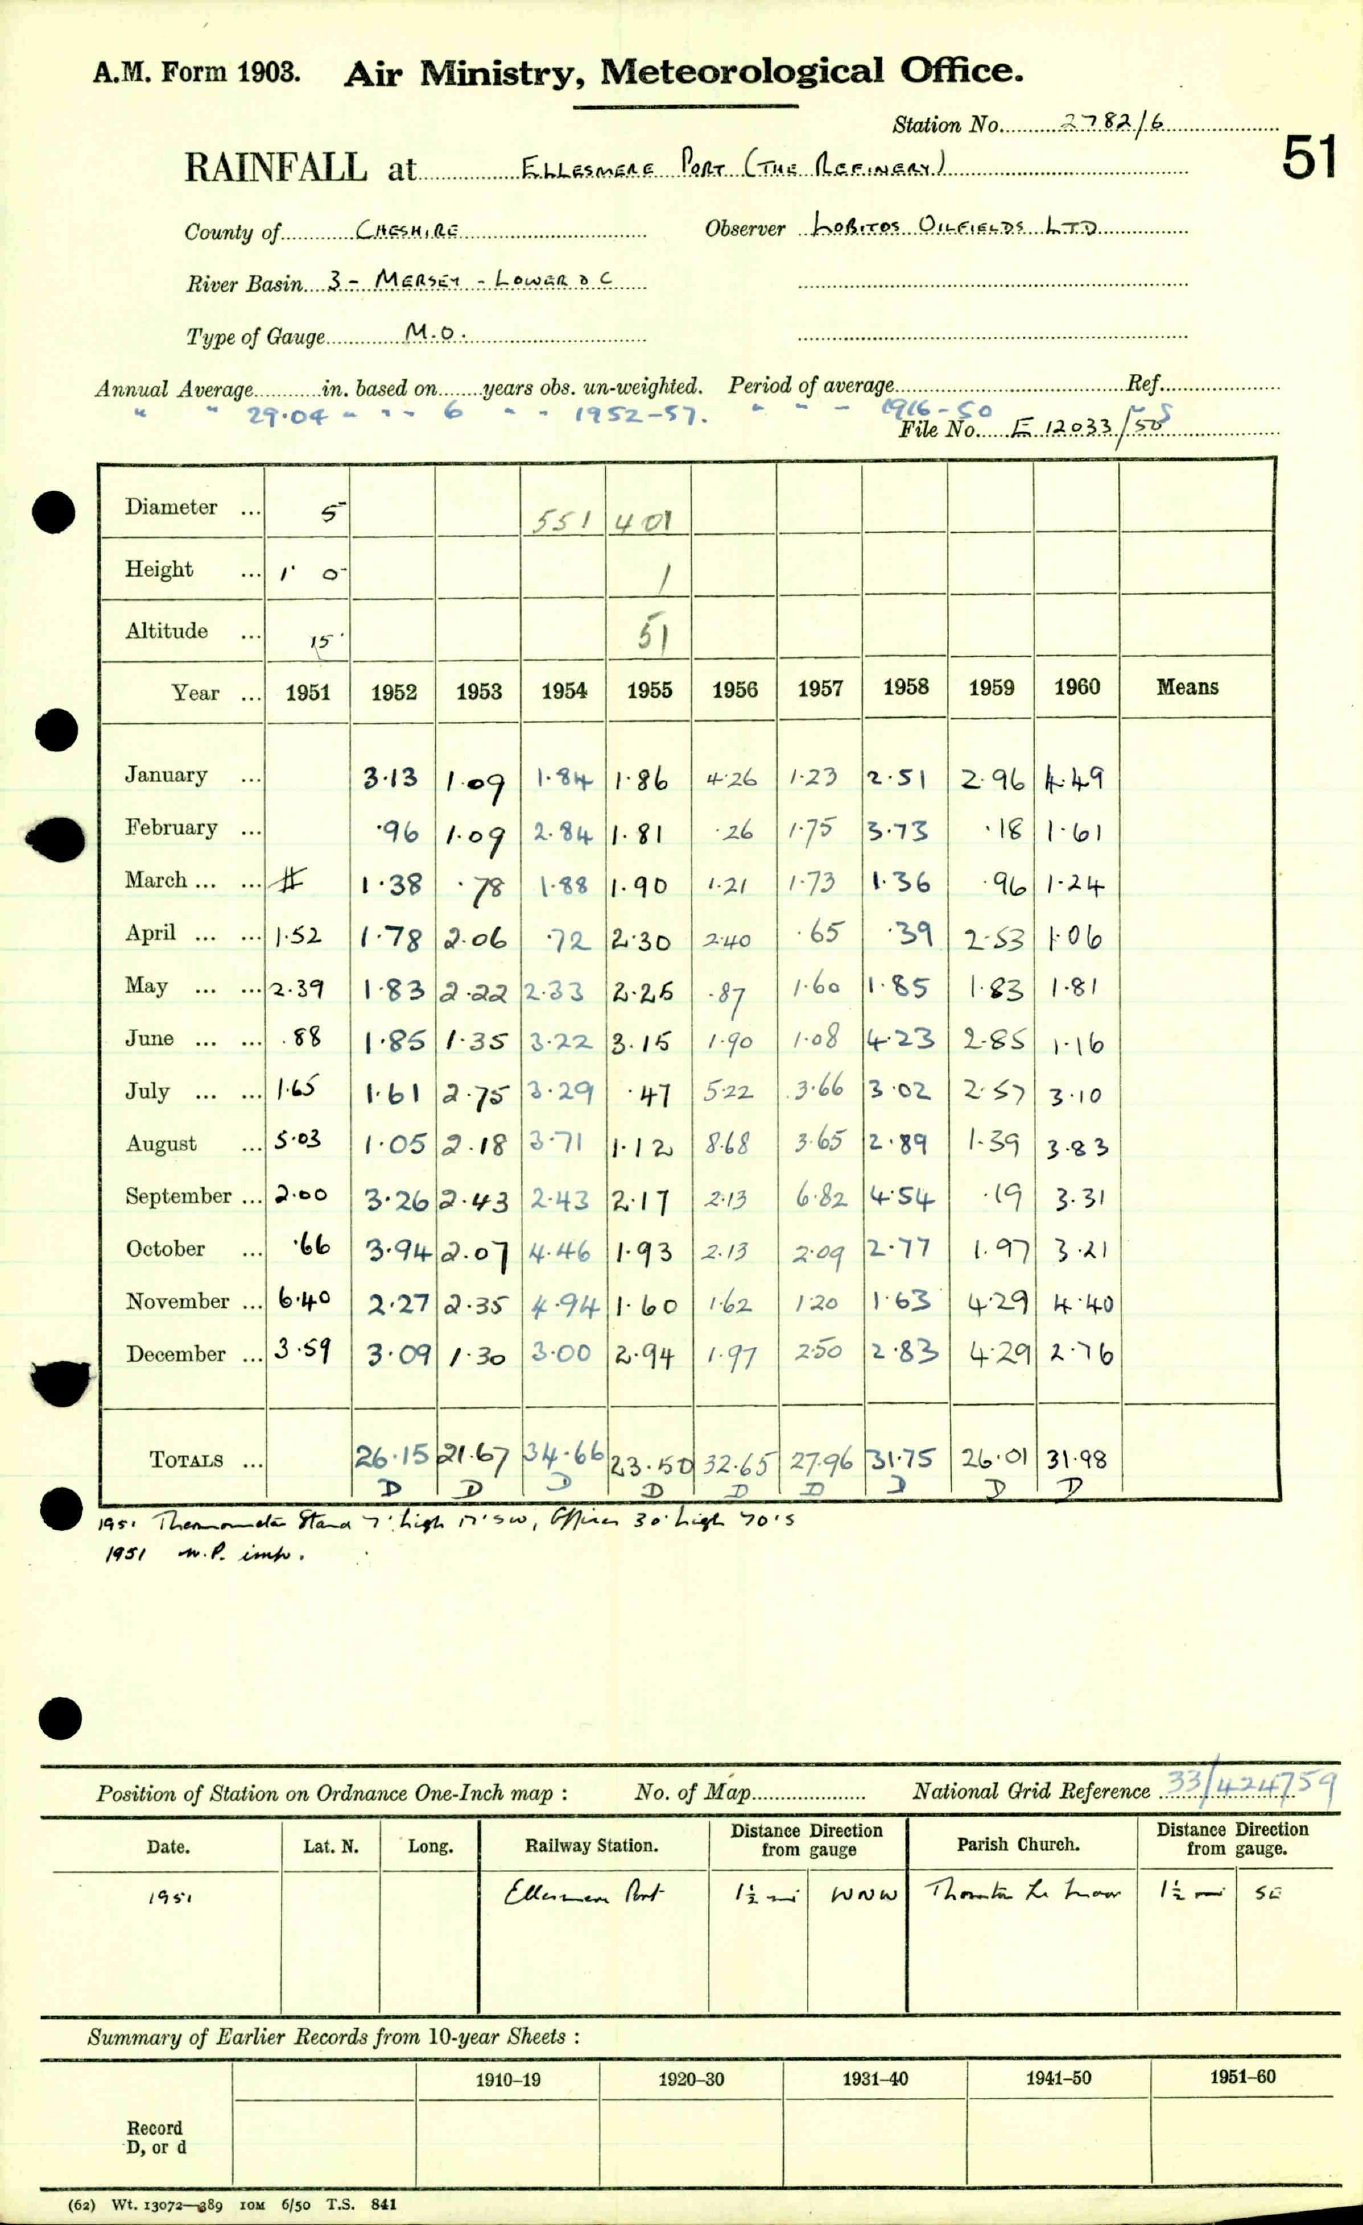 A.M. Form 1903. Air Ministry, Meteorological Office.
Station No. 2782/6
51
RAINFALL at ELLESMERE PORT (THE REFINERY)
County of CHESHIRE Observer LOBITOS OILFIELDS LTD
River Basin 3 - MERSEY - LOWER & C
Type of Gauge M.O.
Annual Average in. based on years obs. un-weighted. Period of average Ref.
" " 29.04 " " " 6 " " 1952-57. " " " 1916-50
File No. E 12033/50
Diameter ... 5 551 401
Height ... 1' 0" 1
Altitude ... 15' 51
Year ... 1951 1952 1953 1954 1955 1956 1957 1958 1959 1960 Means
January ... 3.13 1.09 1.84 1.86 4.26 1.23 2.51 2.96 4.49
February ... .96 1.09 2.84 1.81 .26 1.75 3.73 .18 1.61
March ... ... # 1.38 .78 1.88 1.90 1.21 1.73 1.36 .96 1.24
April ... ... 1.52 1.78 2.06 .72 2.30 2.40 .65 .39 2.53 1.06
May ... ... 2.39 1.83 2.22 2.33 2.25 .87 1.60 1.85 1.83 1.81
June ... ... .88 1.85 1.35 3.22 3.15 1.90 1.08 4.23 2.85 1.16
July ... ... 1.65 1.61 2.75 3.29 .47 5.22 3.66 3.02 2.57 3.10
August ... 5.03 1.05 2.18 3.71 1.12 8.68 3.65 2.89 1.39 3.83
September ... 2.00 3.26 2.43 2.43 2.17 2.13 6.82 4.54 .19 3.31
October ... .66 3.94 2.07 4.46 1.93 2.13 2.09 2.77 1.97 3.21
November ... 6.40 2.27 2.35 4.94 1.60 1.62 1.20 1.63 4.29 4.40
December ... 3.59 3.09 1.30 3.00 2.94 1.97 2.50 2.83 4.29 2.76
TOTALS ... 26.15 21.67 34.66 23.50 32.65 27.96 31.75 26.01 31.98
D D D D D D D D D
1951 Thermometer Stand 7' high 17' SW, Offices 30' high 70' S
1951 M.P. imp.
Position of Station on Ordnance One-Inch map : No. of Map National Grid Reference 33/424759
Date. Lat. N. Long. Railway Station. Distance Direction from gauge Parish Church. Distance Direction from gauge.
1951 Ellesmere Port 1½ mi WNW Thornton Le Moor 1½ mi SE
Summary of Earlier Records from 10-year Sheets :
1910–19 1920–30 1931–40 1941–50 1951–60
Record
D, or d
(62) Wt. 13072—389 10M 6/50 T.S. 841